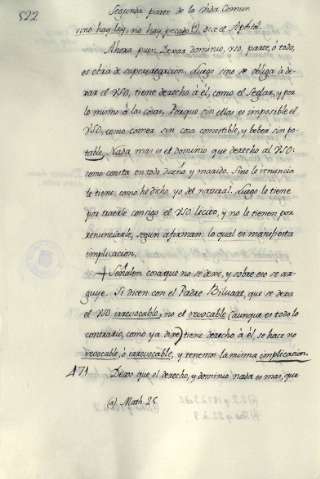 522
Segunda parte de la Vida Comun
sino hay ley, no hay pecado (a) dice el Apostol.
Ahora pues: Dexar dominio, y so, parte, ó todo,
es obra de supererogacion. Luego sino se obliga á de-
xar el uso, tiene derecho á él, como el Seglar, y por
lo mismo á las cosas. Porque sin ellas es imposible el
uso, como comer sin cosa comestible, y beber sin po-
table. Nada mas es el dominio que derecho al uso:
como consta en todo dueño y marido. Sino le renuncia
le tiene, como he dicho, yo del natural. Luego le tiene
por traerle consigo el uso licito, y no le tienen por
renunciarle, segun afirman: lo qual es manifiesta
implicacion.
Señalen cosa que no se dexe, y sobre eso se ar-
guye. Si dicen con el Padre Biluart, que se dexa
el uso irrevocable, no el revocable (aunque es todo lo
contrario, como ya dixe) tiene derecho á él, se hace no
revocable, ó irrevocable, y tenemos la misma implicacion.
471 Dixo que el derecho, y dominio nada es mas, que
(a) Math. 25.